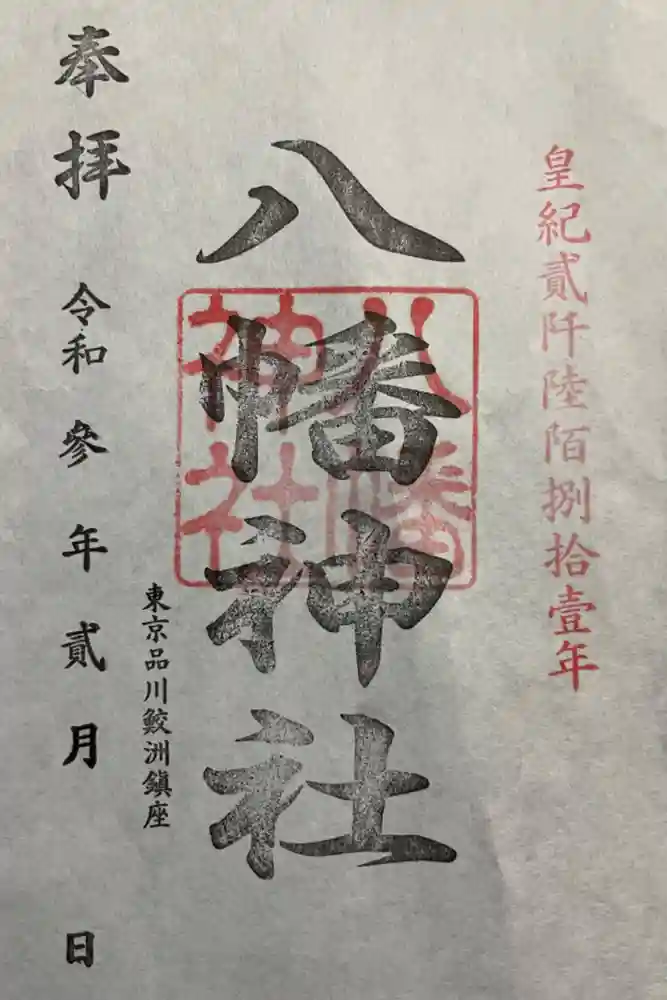 皇紀貳阡陸陌捌拾壹年
八幡神社
八幡
神社
東京品川鮫洲鎮座
奉拝
令和參年貳月 日